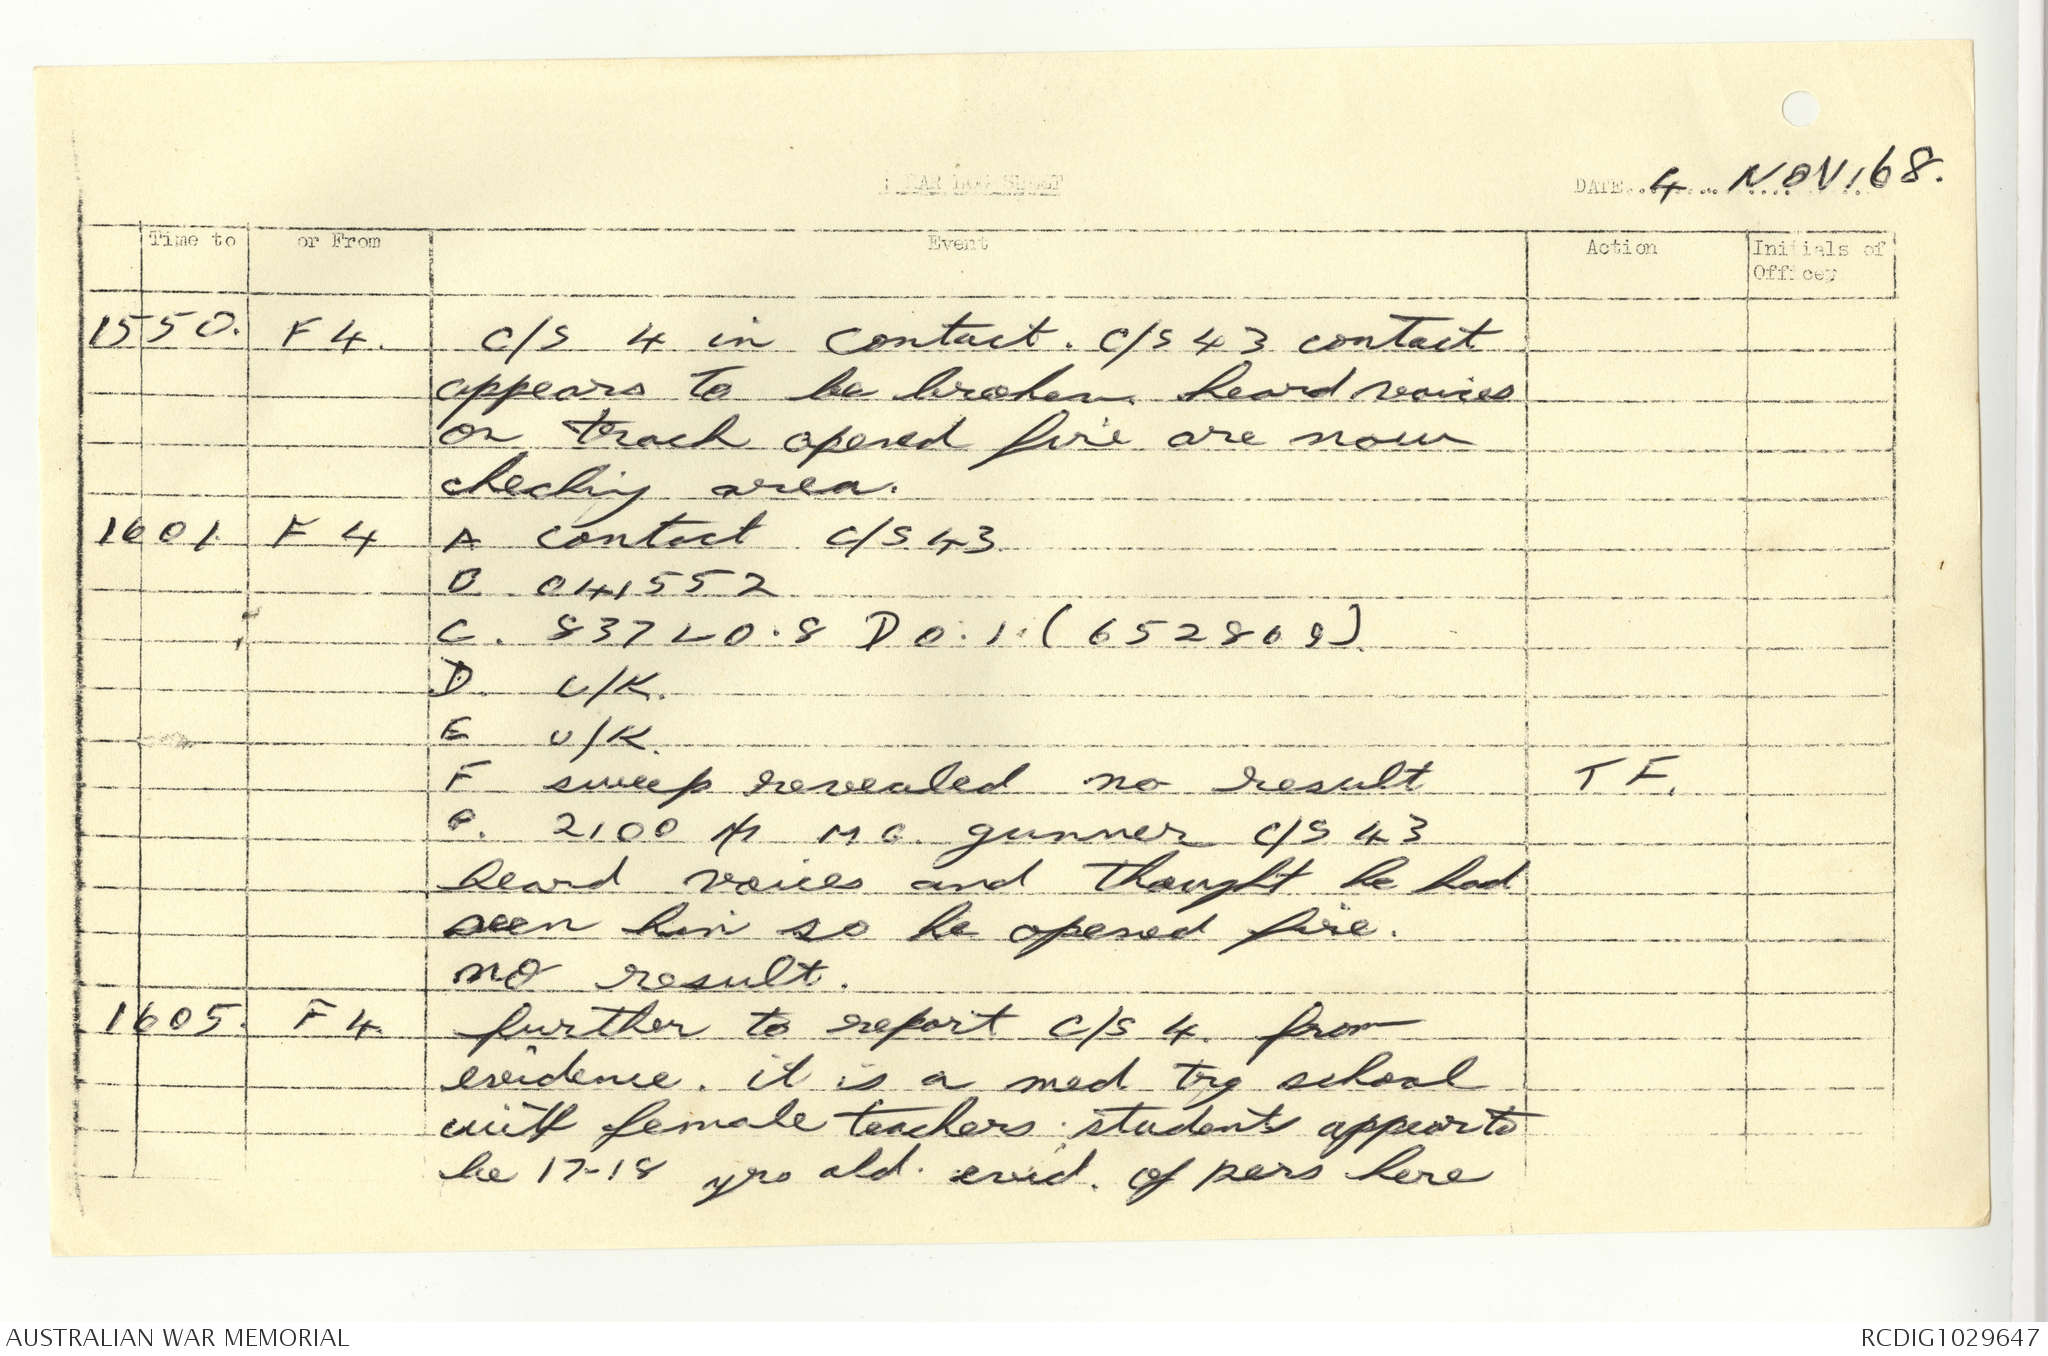 LOG SHEET
DATE 4 NOV 68.
Time to or From Event Action Initials of Officer
1550. F4. C/S 4 in contact. C/S 43 contact
appears to be broken. heard voices
on track opened fire are now
checking area.
1601. F4 A contact C/S 43
B 041552
C. 837 L0.8 D0.1. (652869).
D. U/K.
E U/K.
F sweep revealed no result T F.
G. 2100 MG. gunner C/S 43
heard voices and thought he had
seen him so he opened fire.
no result.
1605. F4 further to report C/S 4. from
evidence. it is a med trg school
with female teachers. students appear to
be 17-18 yrs old. evid. of pers here
AUSTRALIAN WAR MEMORIAL
RCDIG1029647